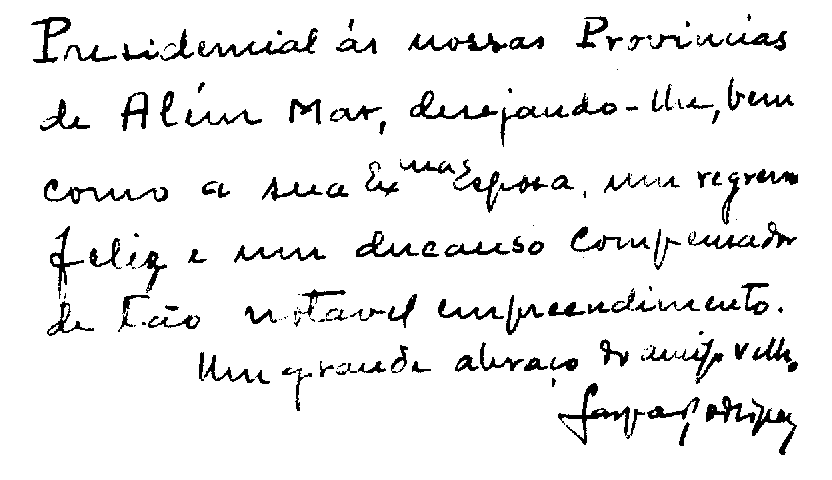 Presidencial ás nossas Provincias
de Além Mar, desejando-lhe, bem
como a sua Exmas Esposa, um regresso
feliz e um descanso compensador
de tão notavel empreendimento.
Um grande abraço do amigo velho
Gaspar Rodrigues